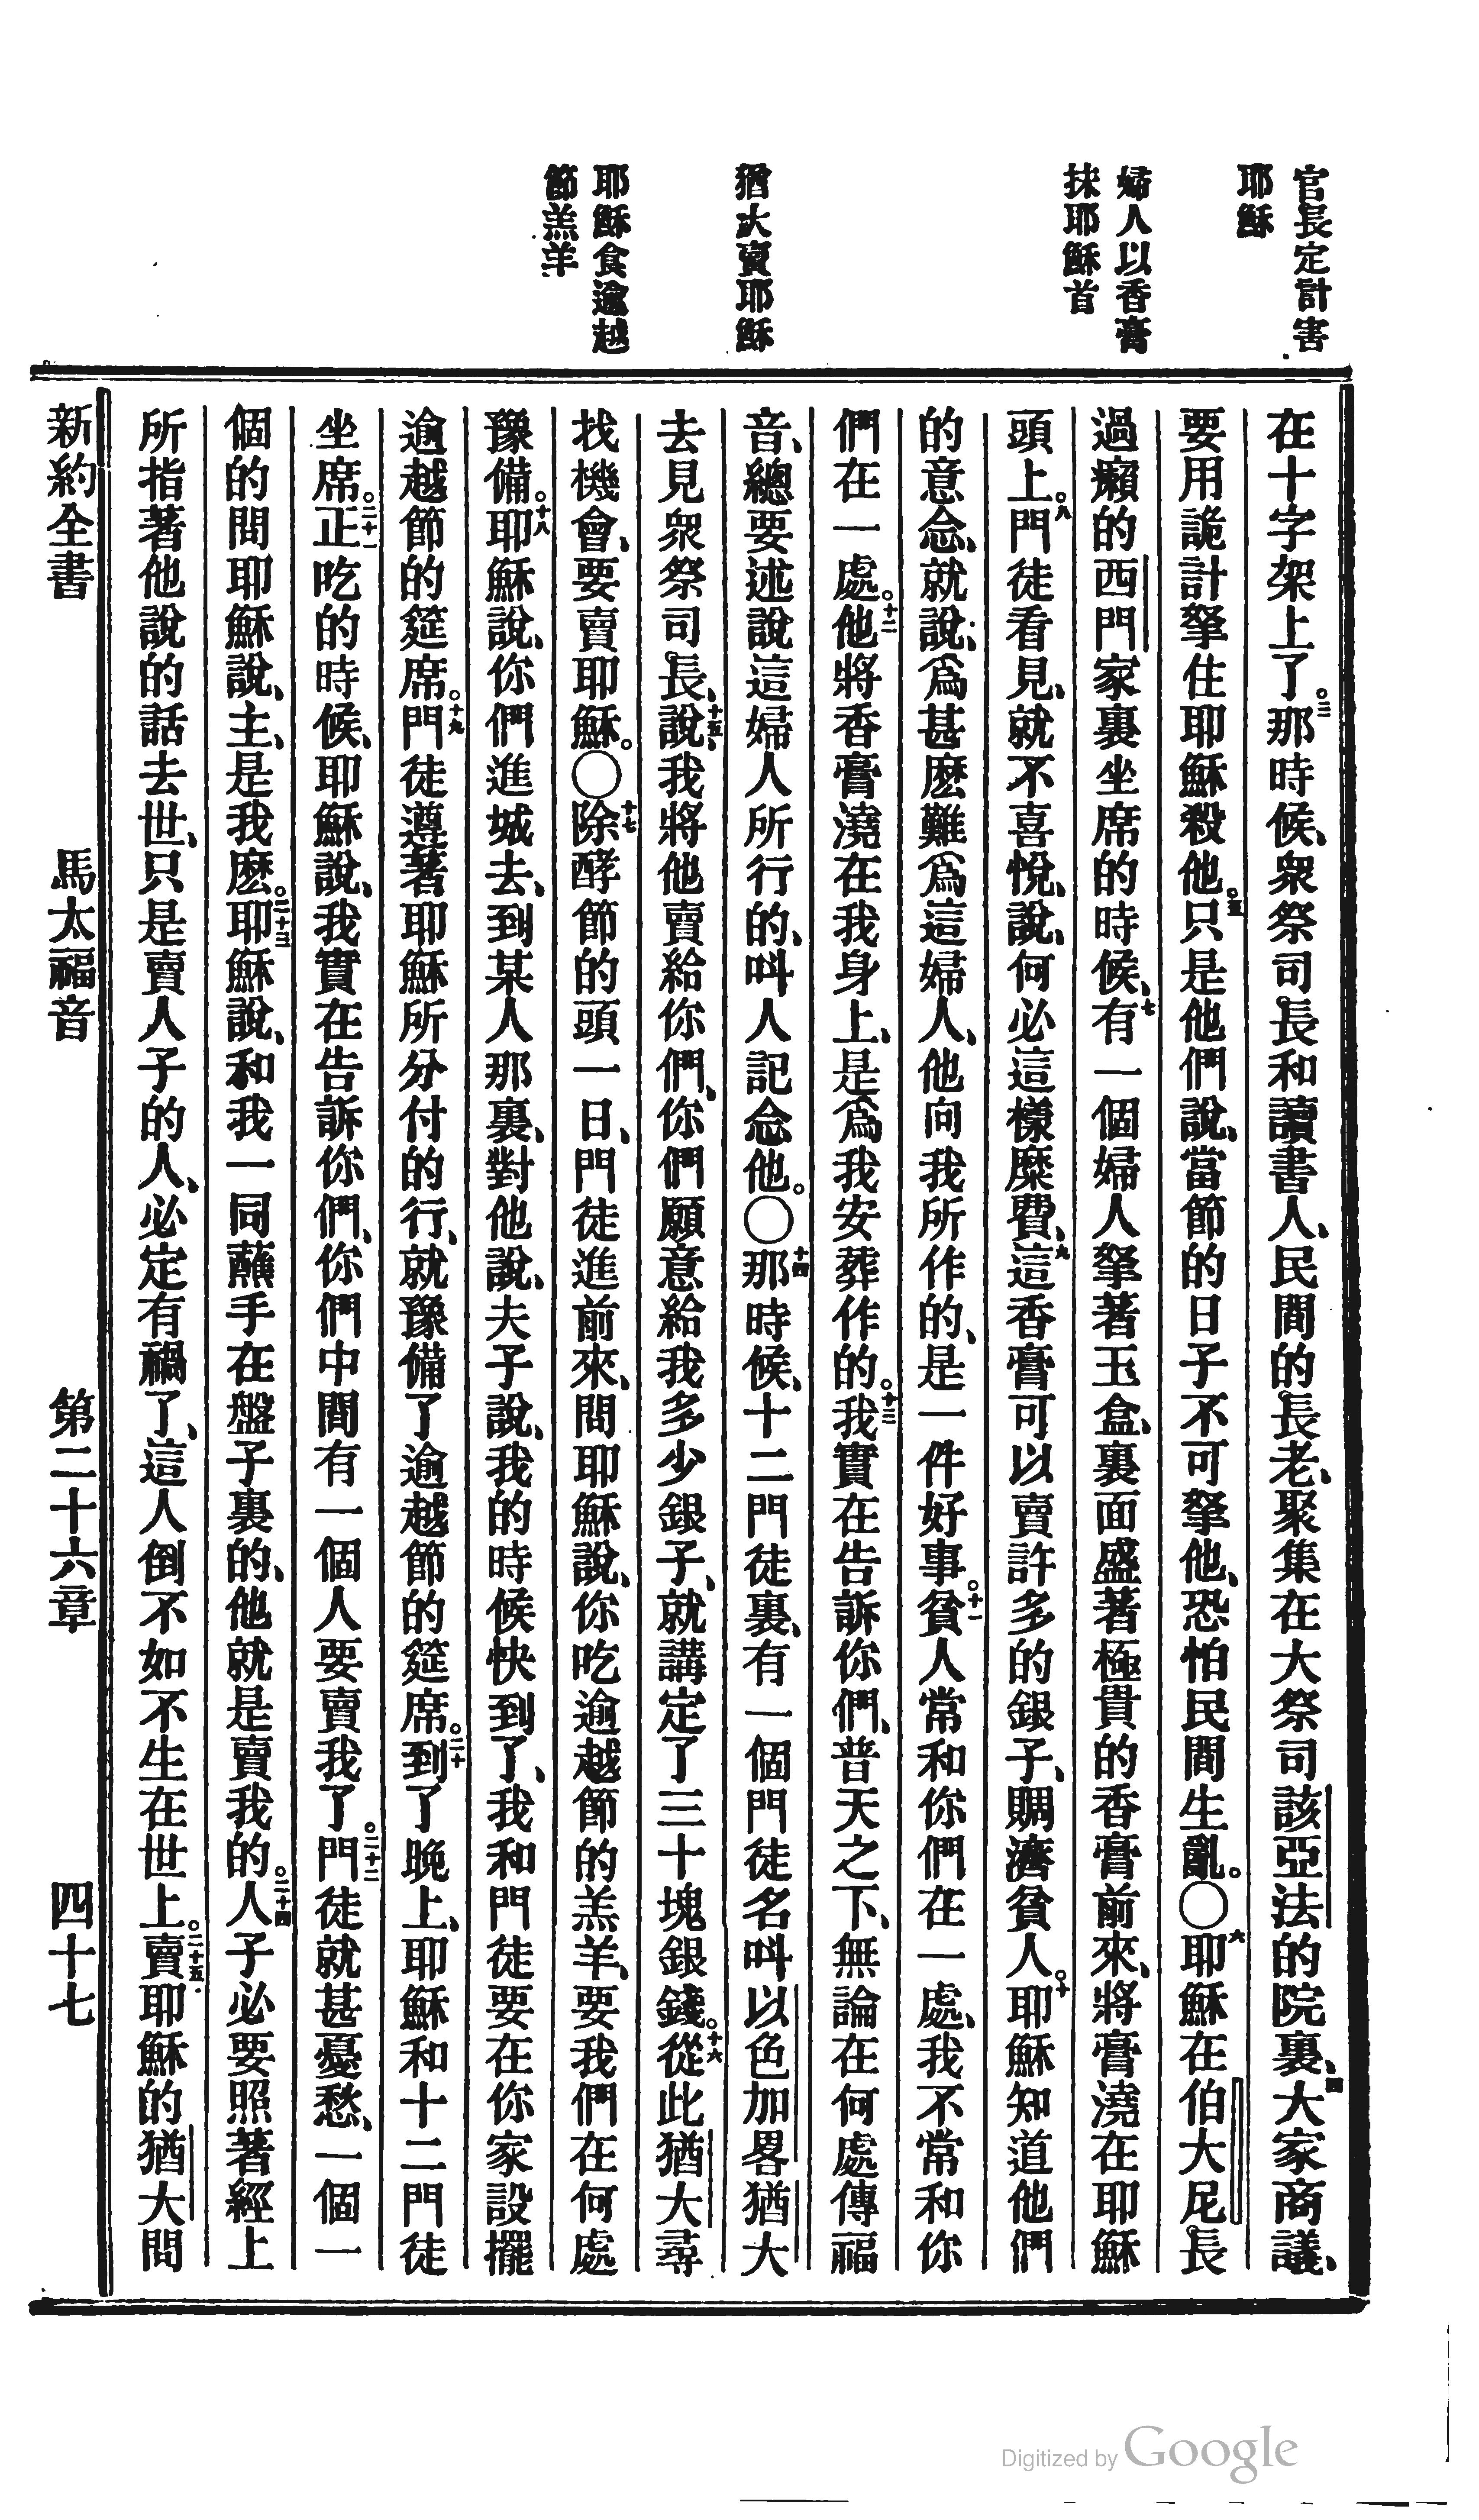 官長定計害
耶穌
婦人以香膏
抹耶穌首
猶大賣耶穌
耶穌食逾越
節羔羊
在十字架上了。三那時候、衆祭司長和讀書人、民間的長老、聚集在大祭司該亞法的院裏、四大家商議、
要用詭計拏住耶穌殺他。五只是他們說、當節的日子不可拏他、恐怕民間生亂。〇六耶穌在伯大尼長
過癩的西門家裏坐席的時候、七有一個婦人拏著玉盒、裏面盛著極貴的香膏前來、將膏澆在耶穌
頭上。八門徒看見、就不喜悅、說、何必這樣糜費、九這香膏可以賣許多的銀子、賙濟貧人。十耶穌知道他們
的意念、就說、爲甚麽難爲這婦人、他向我所作的、是一件好事。十一貧人常和你們在一處、我不常和你
們在一處。十二他將香膏澆在我身上、是爲我安葬作的。十三我實在告訴你們、普天之下、無論在何處傳福
音、總要述說這婦人所行的、叫人記念他。〇十四那時候、十二門徒裏、有一個門徒名叫以色加畧猶大
去見衆祭司長、十五說、我將他賣給你們、你們願意給我多少銀子、就講定了三十塊銀錢。十六從此猶大尋
找機會、要賣耶穌。〇十七除酵節的頭一日、門徒進前來、問耶穌說、你吃逾越節的羔羊、要我們在何處
豫備。十八耶穌說、你們進城去、到某人那裏、對他說、夫子說、我的時候快到了、我和門徒要在你家設擺
逾越節的筵席。十九門徒遵著耶穌所分付的行、就豫備了逾越節的筵席。二十到了晚上、耶穌和十二門徒
坐席。二十一正吃的時候、耶穌說、我實在告訴你們、你們中間有一個人要賣我了。二十二門徒就甚憂愁、一個一
個的問耶穌說、主、是我麽。二十三耶穌說、和我一同蘸手在盤子裏的、他就是賣我的。二十四人子必要照著經上
所指著他說的話去世、只是賣人子的人、必定有禍了、這人倒不如不生在世上。二十五賣耶穌的猶大問
新約全書 馬太福音 第二十六章 四十七
Digitized by Google